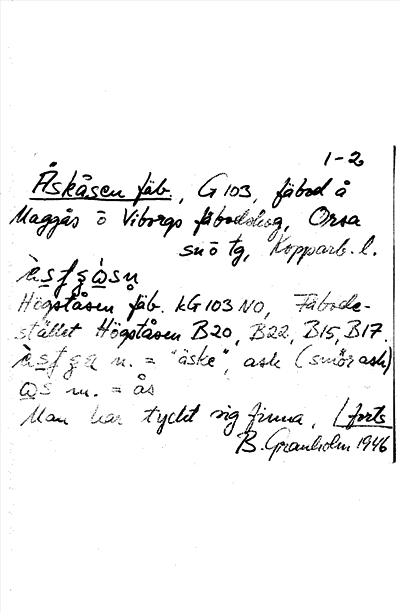 1-2
Åskåsen fäb., G 103, fäbod å
Maggås o Viborgs fäbodskog, Orsa
sn o tg, Kopparb. l.
Högståsen fäb. kG 103 NO, Fäbode-
stället Högståsen B20, B22, B15, B17.
n. = "äske", ask (smörask)
m. = ås
Man har tyckt sig finna, /forts
B. Granholm 1946